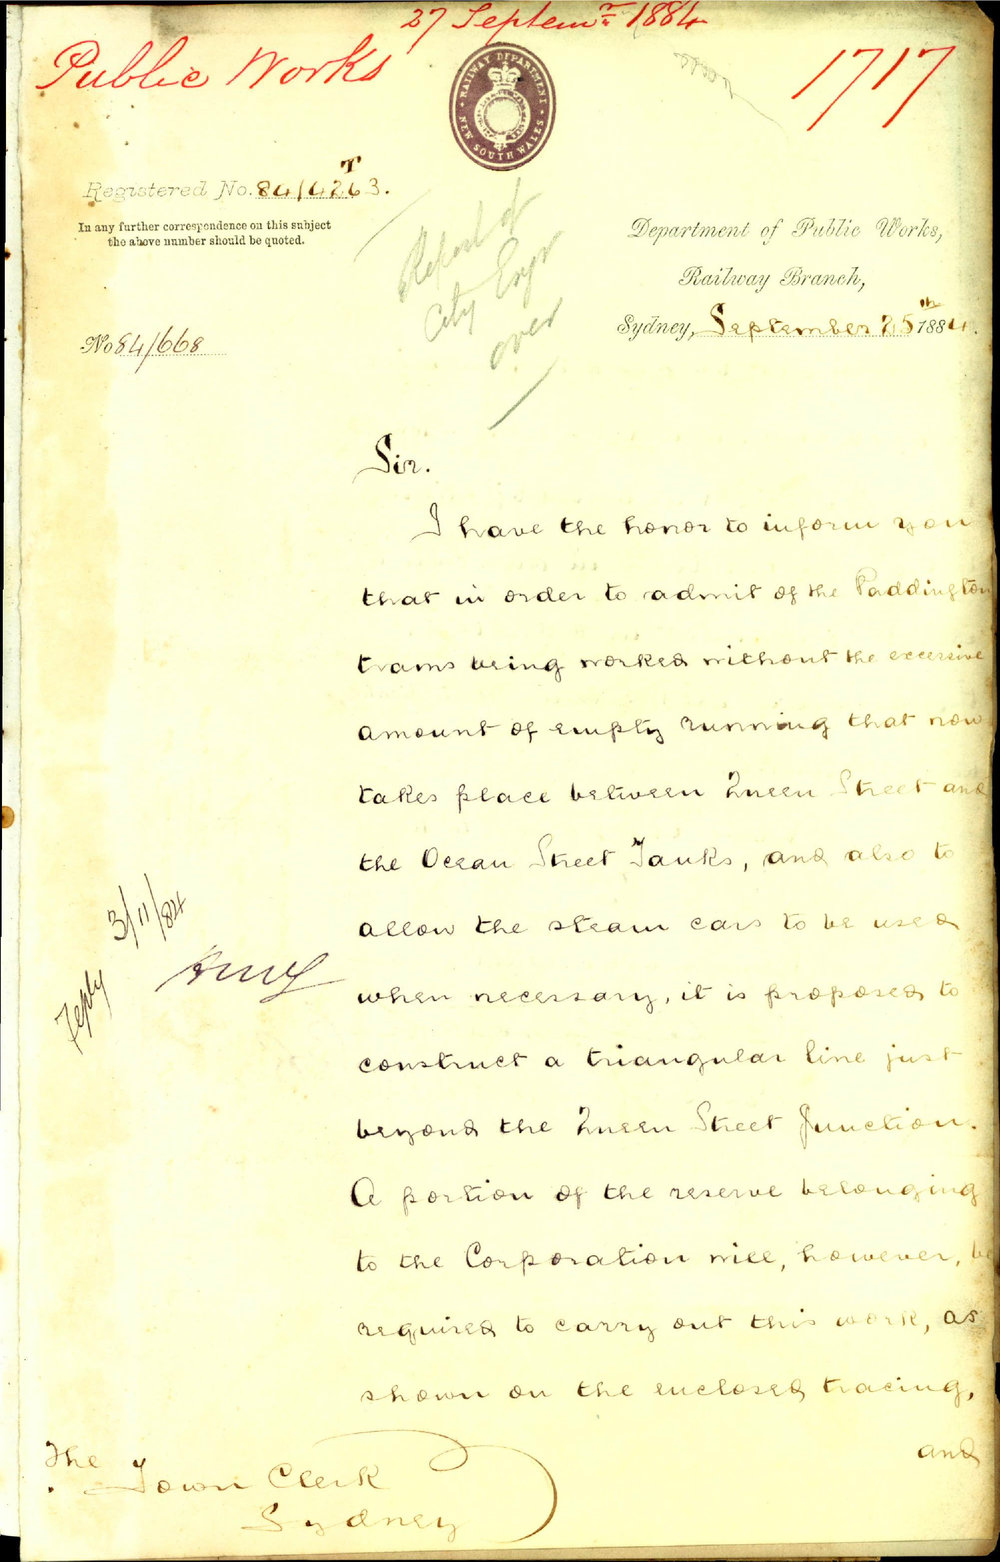 27 Septemr 1884
Public Works
1717
RAILWAY DEPARTMENT
NEW SOUTH WALES
T
Registered No. 84/4263.
In any further correspondence on this subject
the above number should be quoted.
Report of
City Engr
over
Department of Public Works,
Railway Branch,
Sydney, September 25th 1884.
No 84/668
Sir.
I have the honor to inform you
that in order to admit of the Paddington
trams being worked without the excessive
amount of empty running that now
takes place between Queen Street and
the Ocean Street Tanks, and also to
allow the steam cars to be used
when necessary, it is proposed to
construct a triangular line just
beyond the Queen Street Junction.
A portion of the reserve belonging
to the Corporation will, however, be
required to carry out this work, as
shown on the enclosed tracing,
and
Reply 3/11/84
The Town Clerk
Sydney